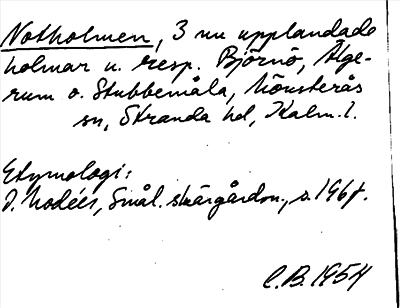 Notholmen, 3 nu upplandade
holmar u. resp. Björnö, Älge-
rum o. Stubbemåla, Mönsterås
sn, Stranda hd, Kalm. l.
Etymologi:
D. Modéer, Smål. skärgårdsn., s. 196 f.
C.B. 1954